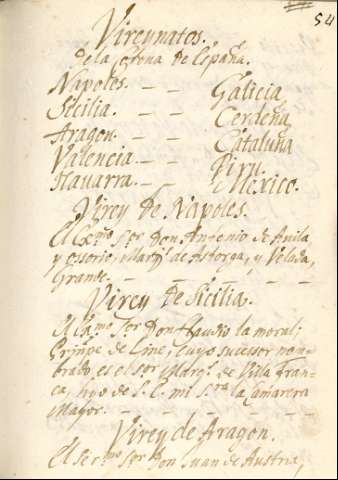 54
Vireynatos.
de la Corona de España.
Napoles. — — Galicia
Sicilia. — — Cerdeña
Aragon. — — Cataluña
Valencia. — — Piru.
Navarra. — — Mexico.
Virey de Napoles.
El Exmo Sor Don Antonio de Avila
y ossorio, Marqs de Astorga, y Velada,
Grande. — — — — —
Virey de Sicilia.
El Exmo Sor Don Claudio la moral;
Prinpe de Line, cuyo sucesor nom-
brado es el sor Marqs. de Villa Fran-
ca, hijo de S. E. mi sra la Camarera
Mayor. — — — — —
Virey de Aragon.
El Sermo Sor Don Juan de Austria,